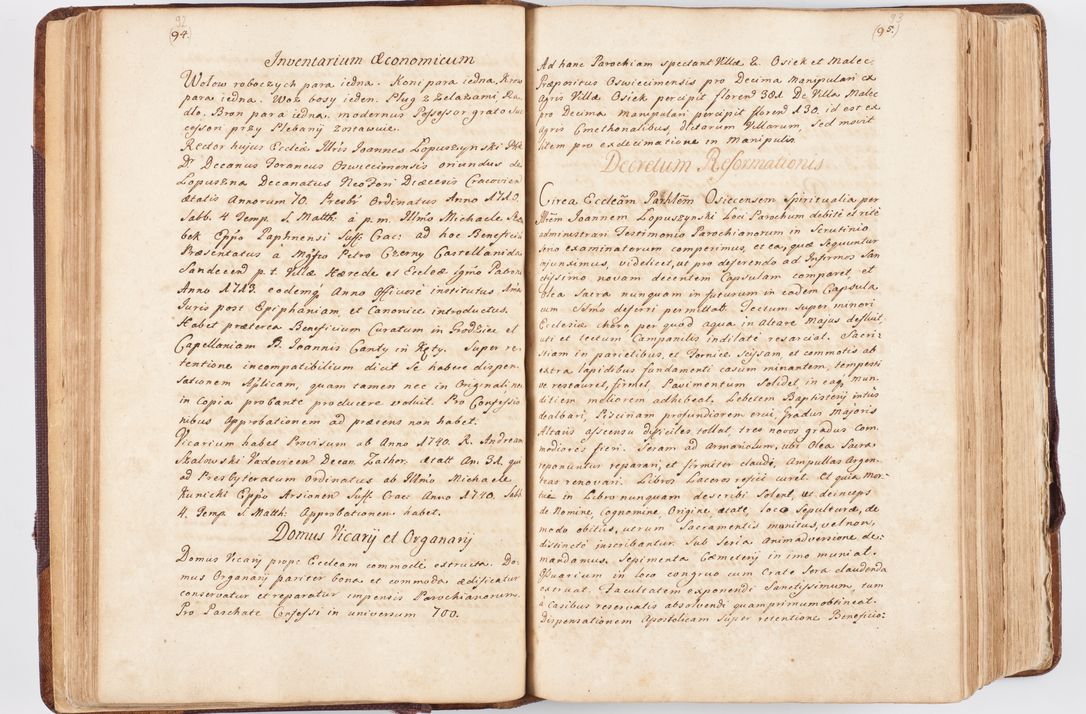 92
(94.
Inventarium Œconomicum
Wołow roboczych para iedna. Koni para iedna, Krow
para iedna. Woz bosy ieden. Pług z Zelazami Ra-
dło. Bron para iedna, modernus Possessor grato Suc
cessori przy Plebanÿ zostawuie.
Rector hujus Eccleæ Illris Joannes Łopuszynski
Dr Decanus Foraneus Oswiecimensis oriundus de
Lopuszna Decanatus NeoFori Diæcesis Cracovien
ætatis Annorum 70. Presbr Ordinatus Anno 1710.
Sabb. 4 Temp. S. Matth. à p. m. Illmo Michaele
bek Eppo Paphnensi Suff: Crac: ad hoc Beneficiũ
Præsentatus à Mgfco Petro Czerny Castellanida
Sandecen p. t. Villæ Hærede et Eccleæ Patrono
Anno 1713. eodemq́ Anno Officiose institutus
Juris post Epiphaniam, et Canonice introductus.
Habet præterea Beneficium Curatum in Grodziec et
Capellaniam B. Joannis Canty in Kęty. Super re-
tentione incompatibilium dicit se habere dispen-
sationem Aplicam, quam tamen nec in Originali, nec
in copia probante producere voluit. Pro Confessio
nibus Approbationem ad præsens non habet.
Vicarium habet Provisum ab Anno 1740. R. Andream
Skalowski Vadovicen Decan. Zathor. ætatt An: 31. qui
ad Presbyteratum Ordinatus ab Illmo Michaele
Kunicki Eppo Arsionen Suff: Crac: Anno 1740. Sabb
4. Temp. S. Matth: Approbationem habet.
Domus Vicarÿ et Organarÿ
Domus Vicarÿ prope Eccleam commodè extructa. Do-
mus Organarÿ pariter bona et commoda ædificatur
conservatur et reparatur impensis Parochianorum.
Pro Paschate Confessi in universum 700.
93
(95.)
Ad hanc Parochiam spectant Villæ 2. Osiek et Malec.
Præpositus Oswiecimensis pro Decima Manipulari ex
Agris Villæ Osiek percipit floren 381. De Villa Malec
pro Decima Manipulari percipit floren 130. id est ex
Agris Cmethonalibus, dictorum Villarum, Sed movit
litem pro exdecimatione in Manipulis.
Decretum Reformationis
Circa Eccleãm Parħlẽm Osiecensem Spiritualia per
Illrẽm Joannem Lopuszynski Loci Parochum debitè et ritè
administrari Testimonio Parochianorum in Scrutinio
serio examinatorum comperimus, et ea, quæ sequuntur
injunximus, videlicet, ut pro deferendo ad Infirmos San
ctissimo novam decentem Capsulam comparet, et
Olea Sacra nunquam in futurum in eadem Capsula
cum SSmo deferri permittat. Tectum super minori
Ecclesiæ choro, per quod aqua in Altare Majus defluit,
uti et tectum Campanilis indilatè resarciat. Sacri-
stiam in parietibus, et Fornice scissam, et commotis ab
extra lapidibus fundamenti casum minantem, tempesti
ve restauret, firmet, Pavimentum solidet, in eaq́ mun-
ditiem meliorem adhibeat, Lebetem Baptisterÿ intùs
dealbari, Piscinam profundiorem erui, gradus Majoris
Altaris ascensu difficiles tollat, tres novos gradus com-
modiores fieri. Seram ad Armariolum, ubi Olea Sacra
reponuntur reparari, et firmiter claudi, Ampullas Argen-
teas renovari. Libros Laceros refici curet. Et quia Mor-
tui in Libro nunquam describi solent, ut deinceps
de Nomine, cognomine, Origine, ætate, loco sepulturæ, de
modo obitus, utrum Sacramentis munitus, vel non,
distinctè inscribantur. Sub Seria Animadversione de-
mandamus. Sepimenta Cœmeterÿ in imo muniat.
Ossuarium in loco congruo cum Crate sera claudenda
extruat. Facultatem exponendi Sanctissimum, tum
à Casibus reservatis absolvendi quamprimum obtineat.
Dispensationem Apostolicam Super retentione Beneficio-